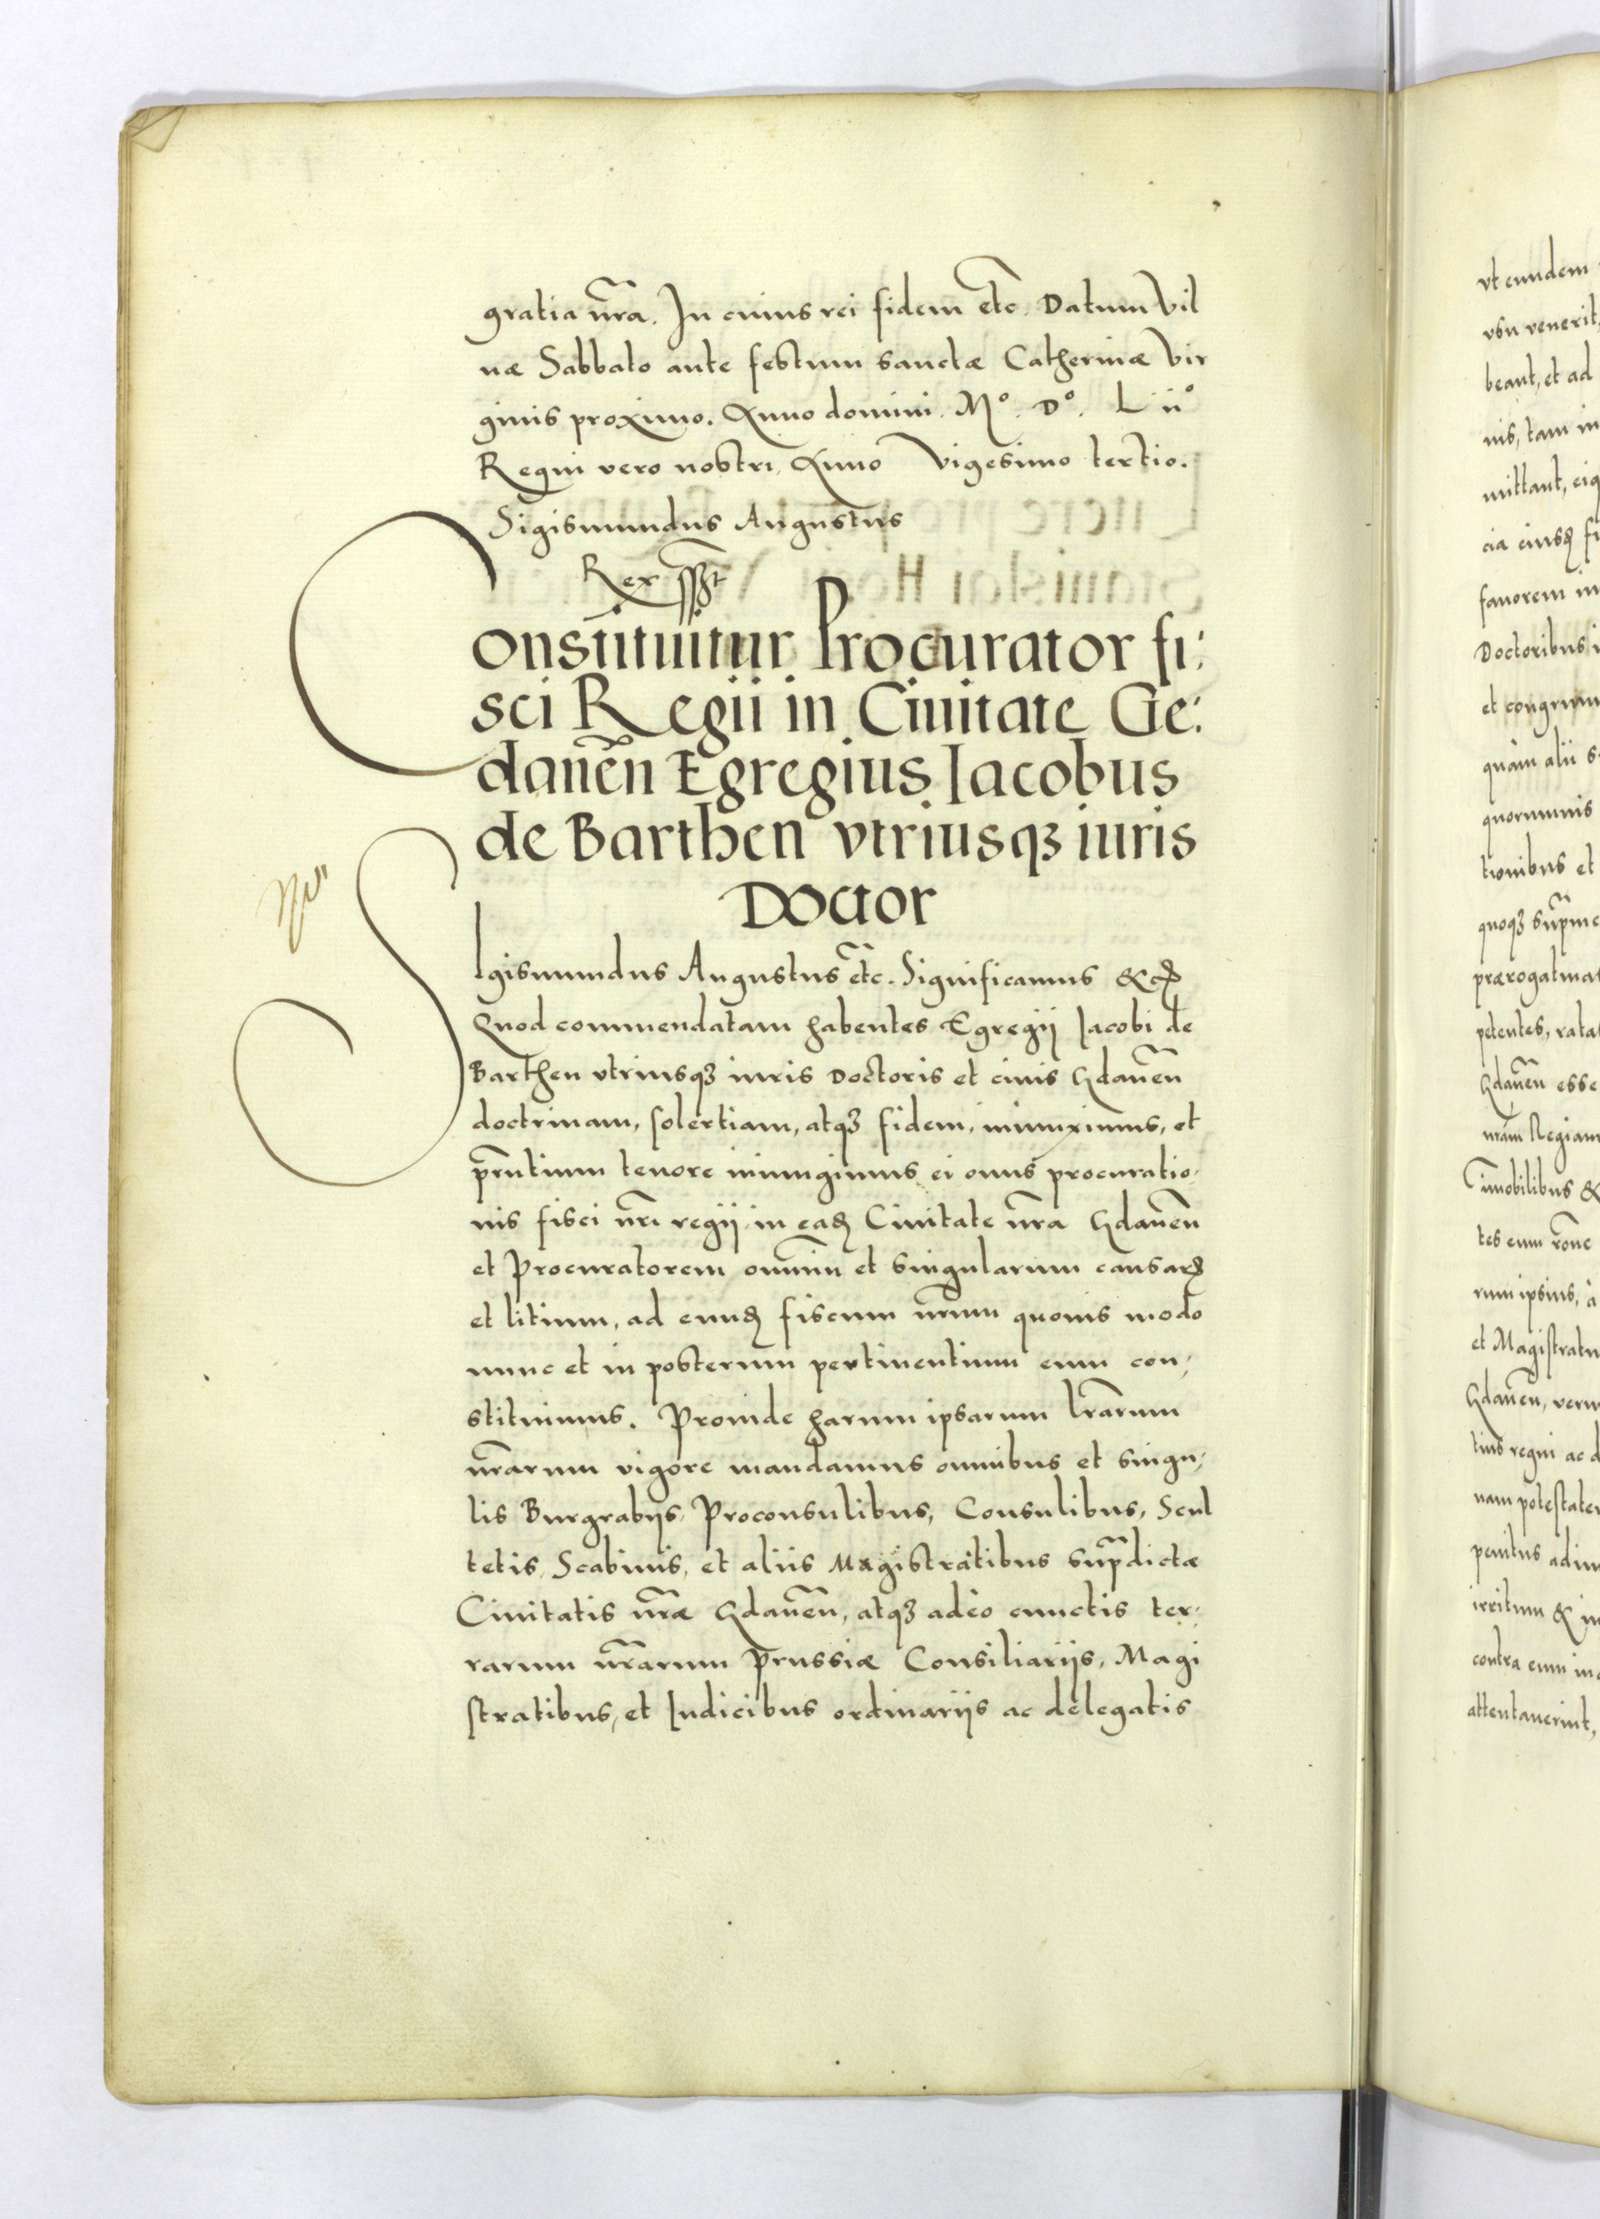 gratia nr̃a. In cuius rei fidem etc̃. Datum Vil
næ Sabbato ante festum sanctæ Catherinæ Vir
ginis proximo. Anno domini. Mº. Dº. L iiº
Regni vero nostri, Anno Vigesimo tertio.
Sigismundus Augustus
Rex
Constituitur Procurator fi:
sci Regii in Ciuitate Ge:
danen̄ Egregius Iacobus
de Barthen vtriusqꝫ iuris
Doctor
SIgismundus Augustus etc̃. Significamus &c
Quod commendatam habentes Egregij Iacobi de
Barthen vtriusqꝫ iuris Doctoris et ciuis Gdanen̄
doctrinam, solertiam, atqꝫ fidem, iniunximus, et
pr̃ntium tenore iniungimus ei onus procuratio,
nis fisci nr̃i regij in eadꝫ Ciuitate nr̃a Gdanen̄
et Procuratorem omnium et singularum causarꝫ
et litium, ad eundꝫ fiscum nr̃um quouis modo
nunc et in posterum pertinentium eum con,
stituimus. Proinde harum ipsarum lr̃arum
nr̃arum vigore mandamus omnibus et singu,
lis Burgrabijs, Proconsulibus, Consulibus, Scul
tetis, Scabinis, et aliis Magistratibus supradictæ
Ciuitatis nr̃æ Gdanen̄, atqꝫ adeò cunctis ter,
rarum nr̃arum Prussiæ Consiliarijs, Magi
stratibus, et Iudicibus ordinarijs ac delegatis
vt eundem
venerit,
beant, et ad
nis, tam in
mittant, eiq
cia eiusdꝫ fi
fauorem in
Doctoribus i
et congruum
quàm alii s
quorumuis
tionibus et
quoqꝫ
prærogatiua
petentes, rata
Gdanen̄ esse
nr̃am Regiam
immobilibus &
tes eum
rum ipsius, à
et Magistratu
Gdanen̄, veru
tius regni ac d
nam potestatem
penitus adim
irritum & in
contra eum in
attentauerint,